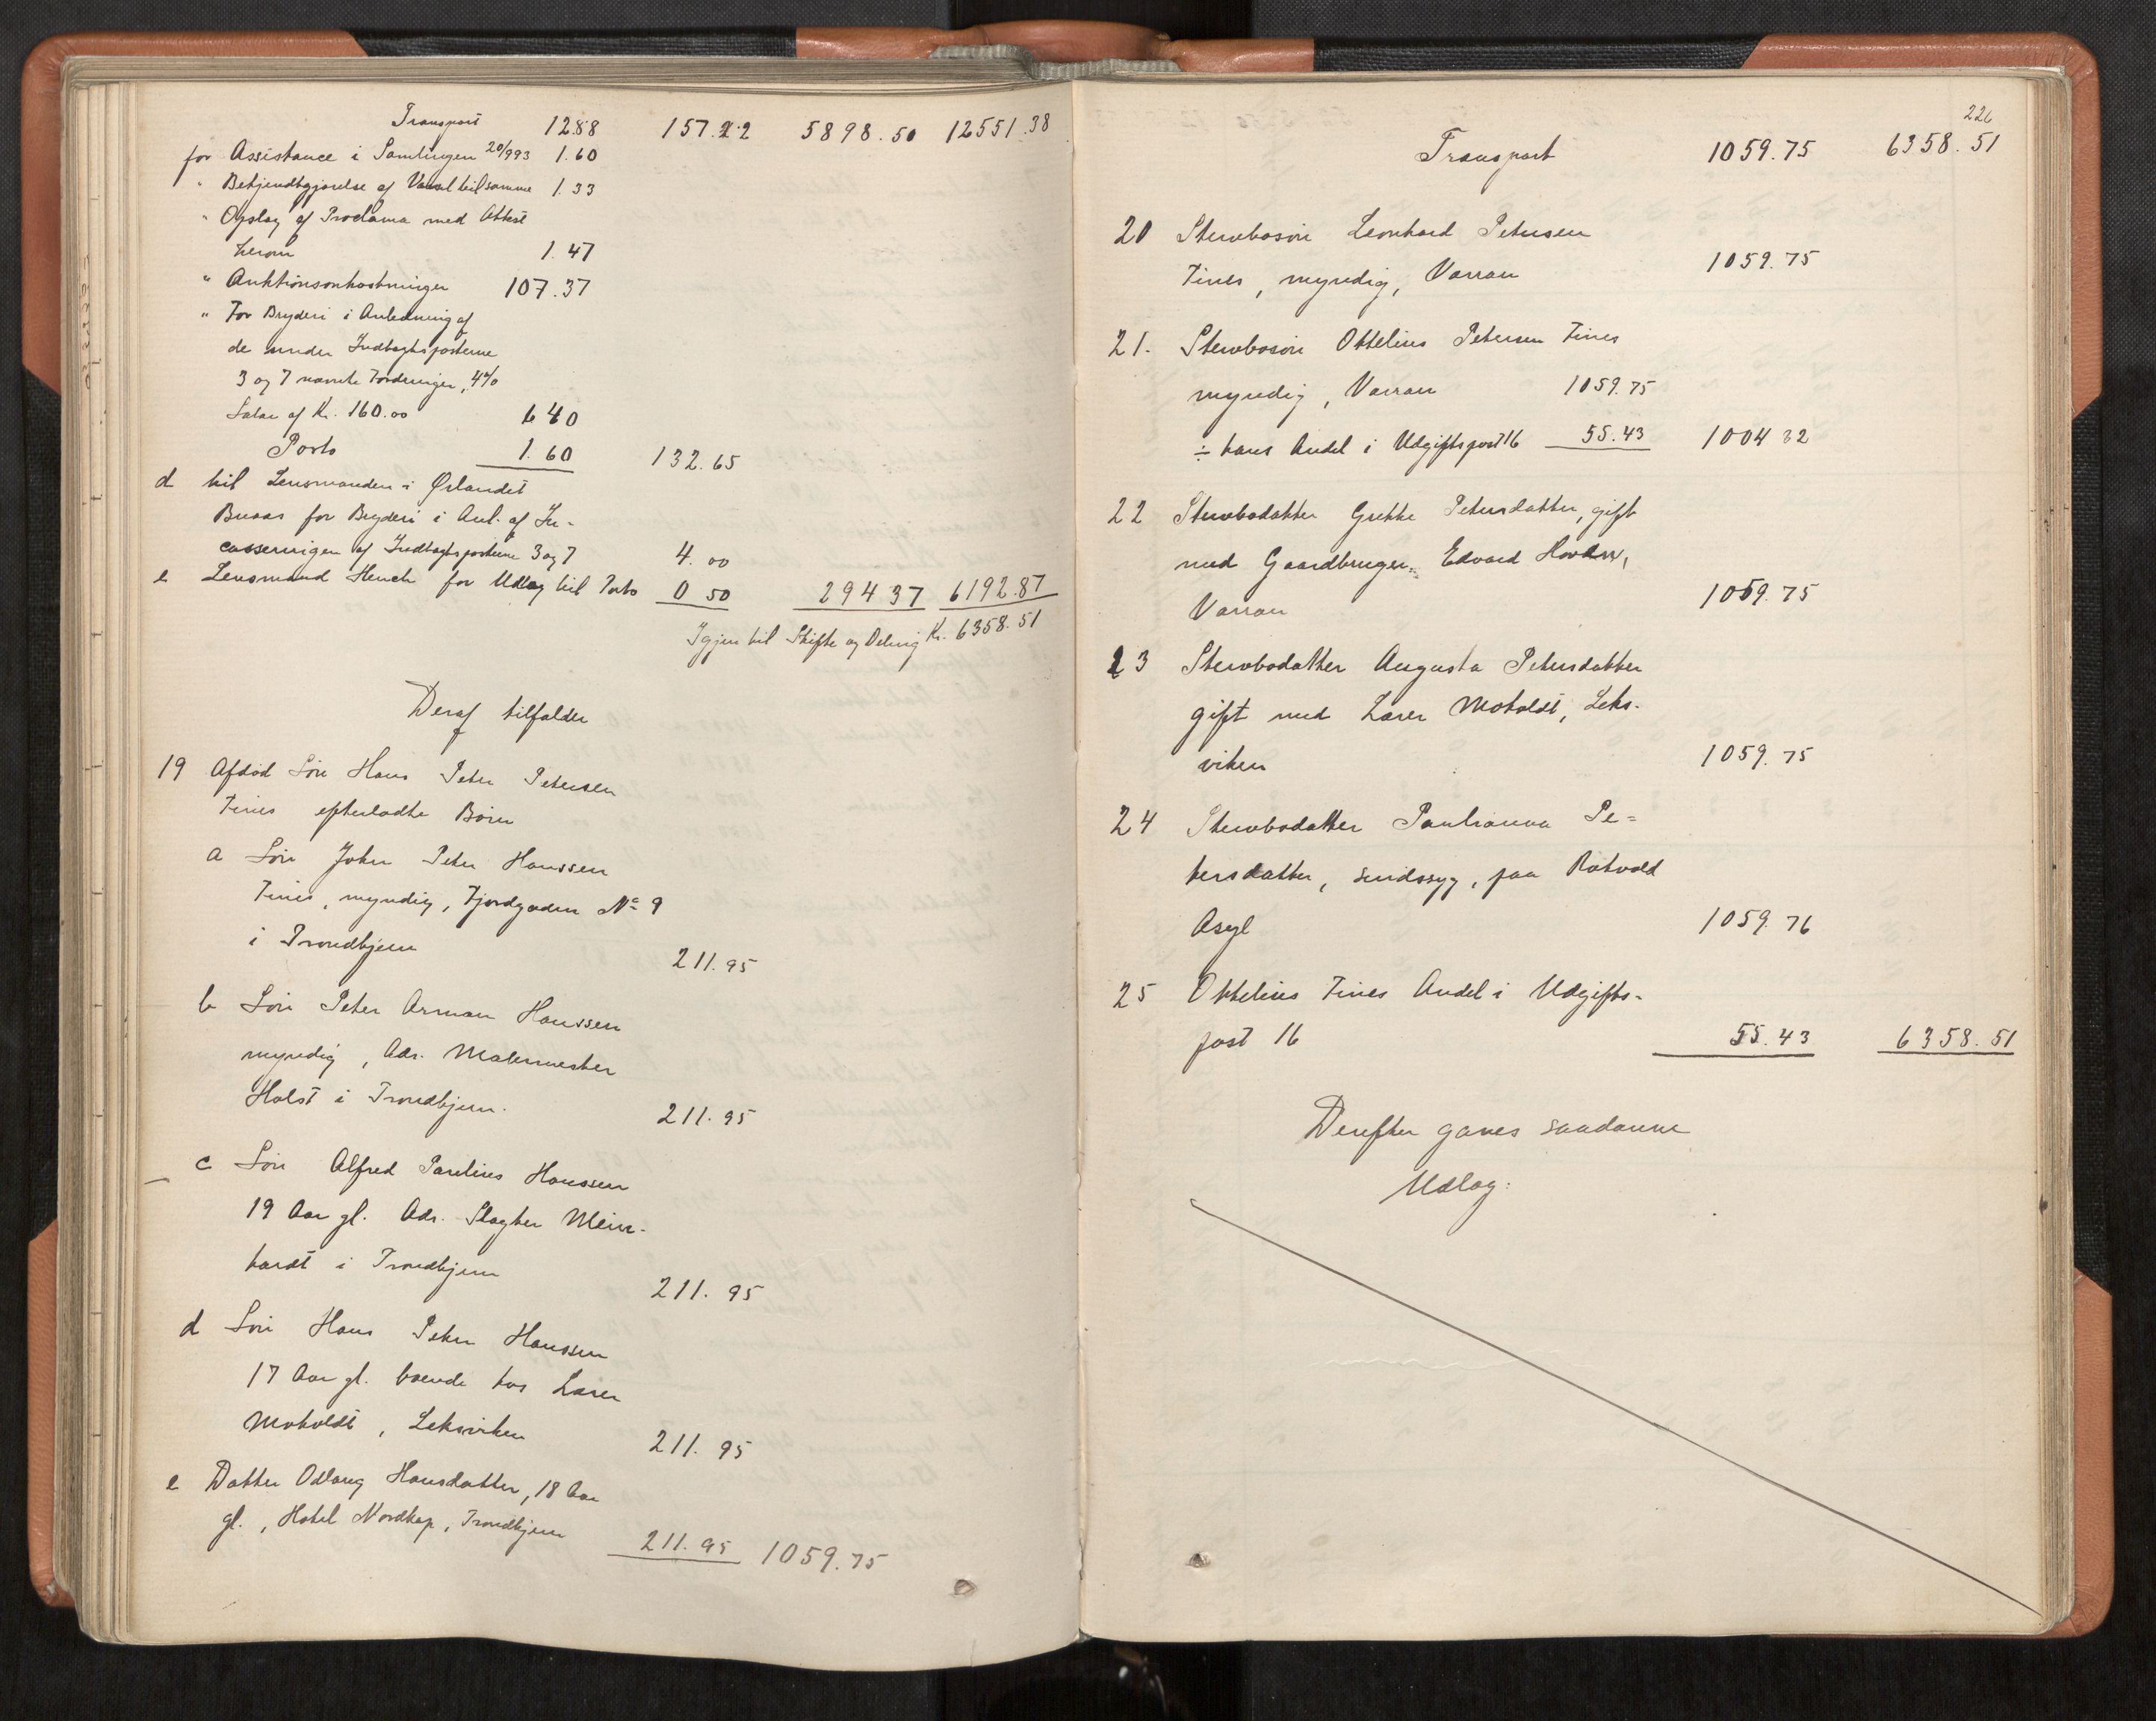 Transport 12.88 157.22 5898.50 12551.38
for Assistance i Samlingen 20/9 93 1.60
" Bekjendtgjørelse af Varsel til samme 1.33
" Opslag af Proclama med Attest
herom 1.47
" Auktionsomkostninger 107.37
" For Bryderi i Anledning af
de under Indtægtsposterne
3 og 7 nævnte Fordringer, 4%
Salær af Kr. 160.00 6 40
Porto 1.60 132.65
d til Lensmanden i Ørlandet
for Bryderi i Anl. af In-
casseringen af Indtægtsposterne 3 og 7 4.00
e Lensmand Henck for Udlæg til Porto 0 50 294 37 6192.87
Igjen til Skifte og Deling Kr. 6358.51
Deraf tilfalder
19 Afdød Søn Hans Peter Petersen
Tines efterladte Børn
a Søn Johan Peter Hanssen
Tines, myndig, Fjordgaden No 9
i Trondhjem 211.95
b Søn Peter Arman Hanssen
myndig, Adr. Malermester
Holst i Trondhjem. 211.95
c Søn Alfred Paulius Hanssen
19 Aar gl. Adr. Slagter Mein-
hardt i Trondhjem 211.95
d Søn Hans Peter Hanssen
17 Aar gl. boende hos Lærer
Moholdt, Leksviken 211.95
e Datter Odlaug Hansdatter, 18 Aar
gl., Hotel Nordkap, Trondhjem 211.95 1059.75
226
Transport 1059.75 6358.51
20 Stervbosøn Leonhard Petersen
Tines, myndig, Værran 1059.75
21. Stervbosøn Ottelius Petersen Tines
myndig, Værran 1059.75
÷ hans Andel i Udgiftspost 16 55.43 1004 32
22 Stervbodatter Grethe Petersdatter, gift
med Gaardbruger Edvard Hovden,
Værran 1059.75
23 Stervbodatter Augusta Petersdatter
gift med Lærer Moholdt, Leks-
viken 1059.75
24 Stervbodatter Paulianna Pe=
tersdatter, sindssyg, paa Rotvold
Asyl 1059.76
25 Ottelius Tines Andel i Udgifts-
post 16 55.43 6358.51
Derefter gjøres saadanne
Udlæg: